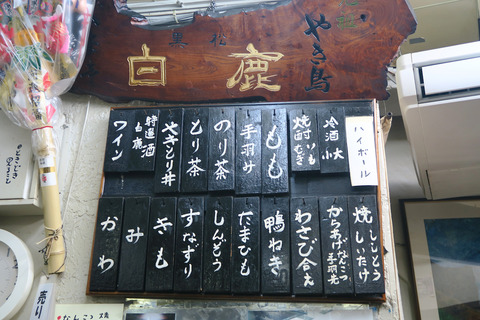 黒松
白鹿
やき鳥
ハイボール
冷酒 大
小
焼酎 いも
むぎ
もも
手羽み
のり茶
とり茶
やきとり丼
特選酒
白鹿
ワイン
焼 ししとう
しいたけ
からあげ なんこつ
手羽先
わさび合え
鴨ねぎ
たまひも
しんぞう
すなずり
きも
み
かわ
売り
なんこつ